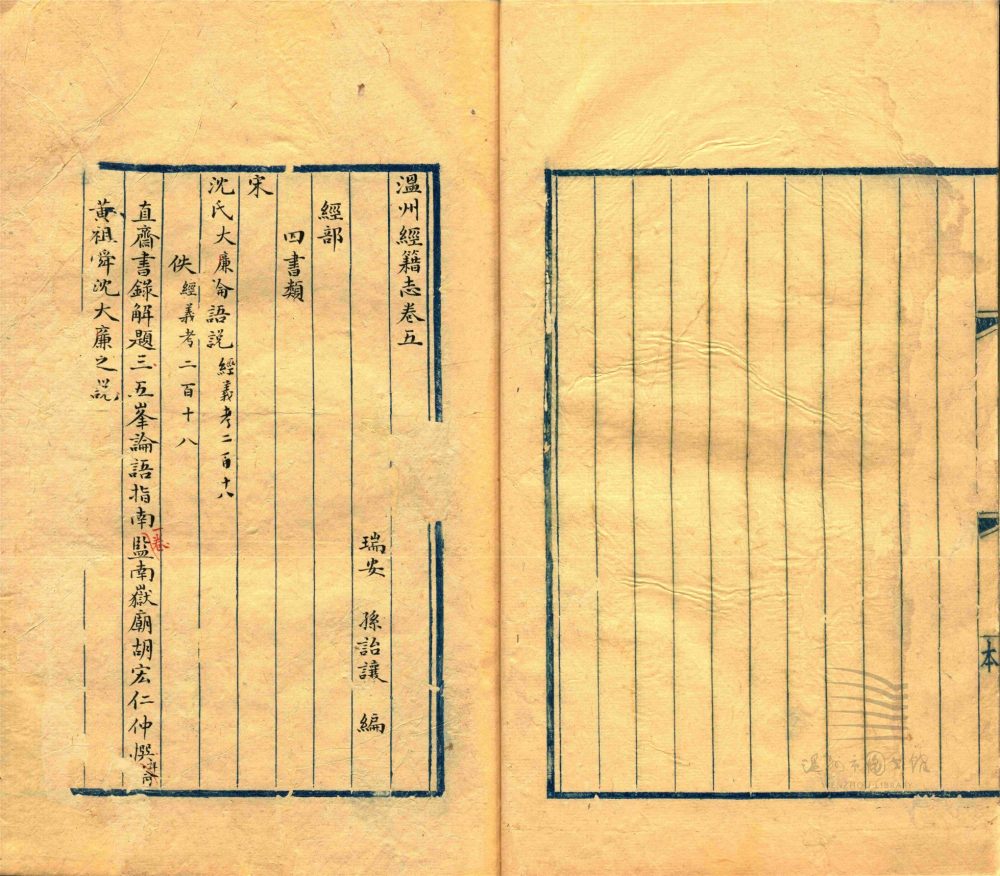 本
温州市图书馆
WENZHOU LIBRARY
溫州經籍志卷五
瑞安 孫詒讓 編
經部
四書類
宋
沈氏大廉論語說 經義考二百十八
佚 經義考二百十八
直齋書錄解題三五峯論語指南一卷監南嶽廟胡宏仁仲撰
黃祖舜沈大廉之說